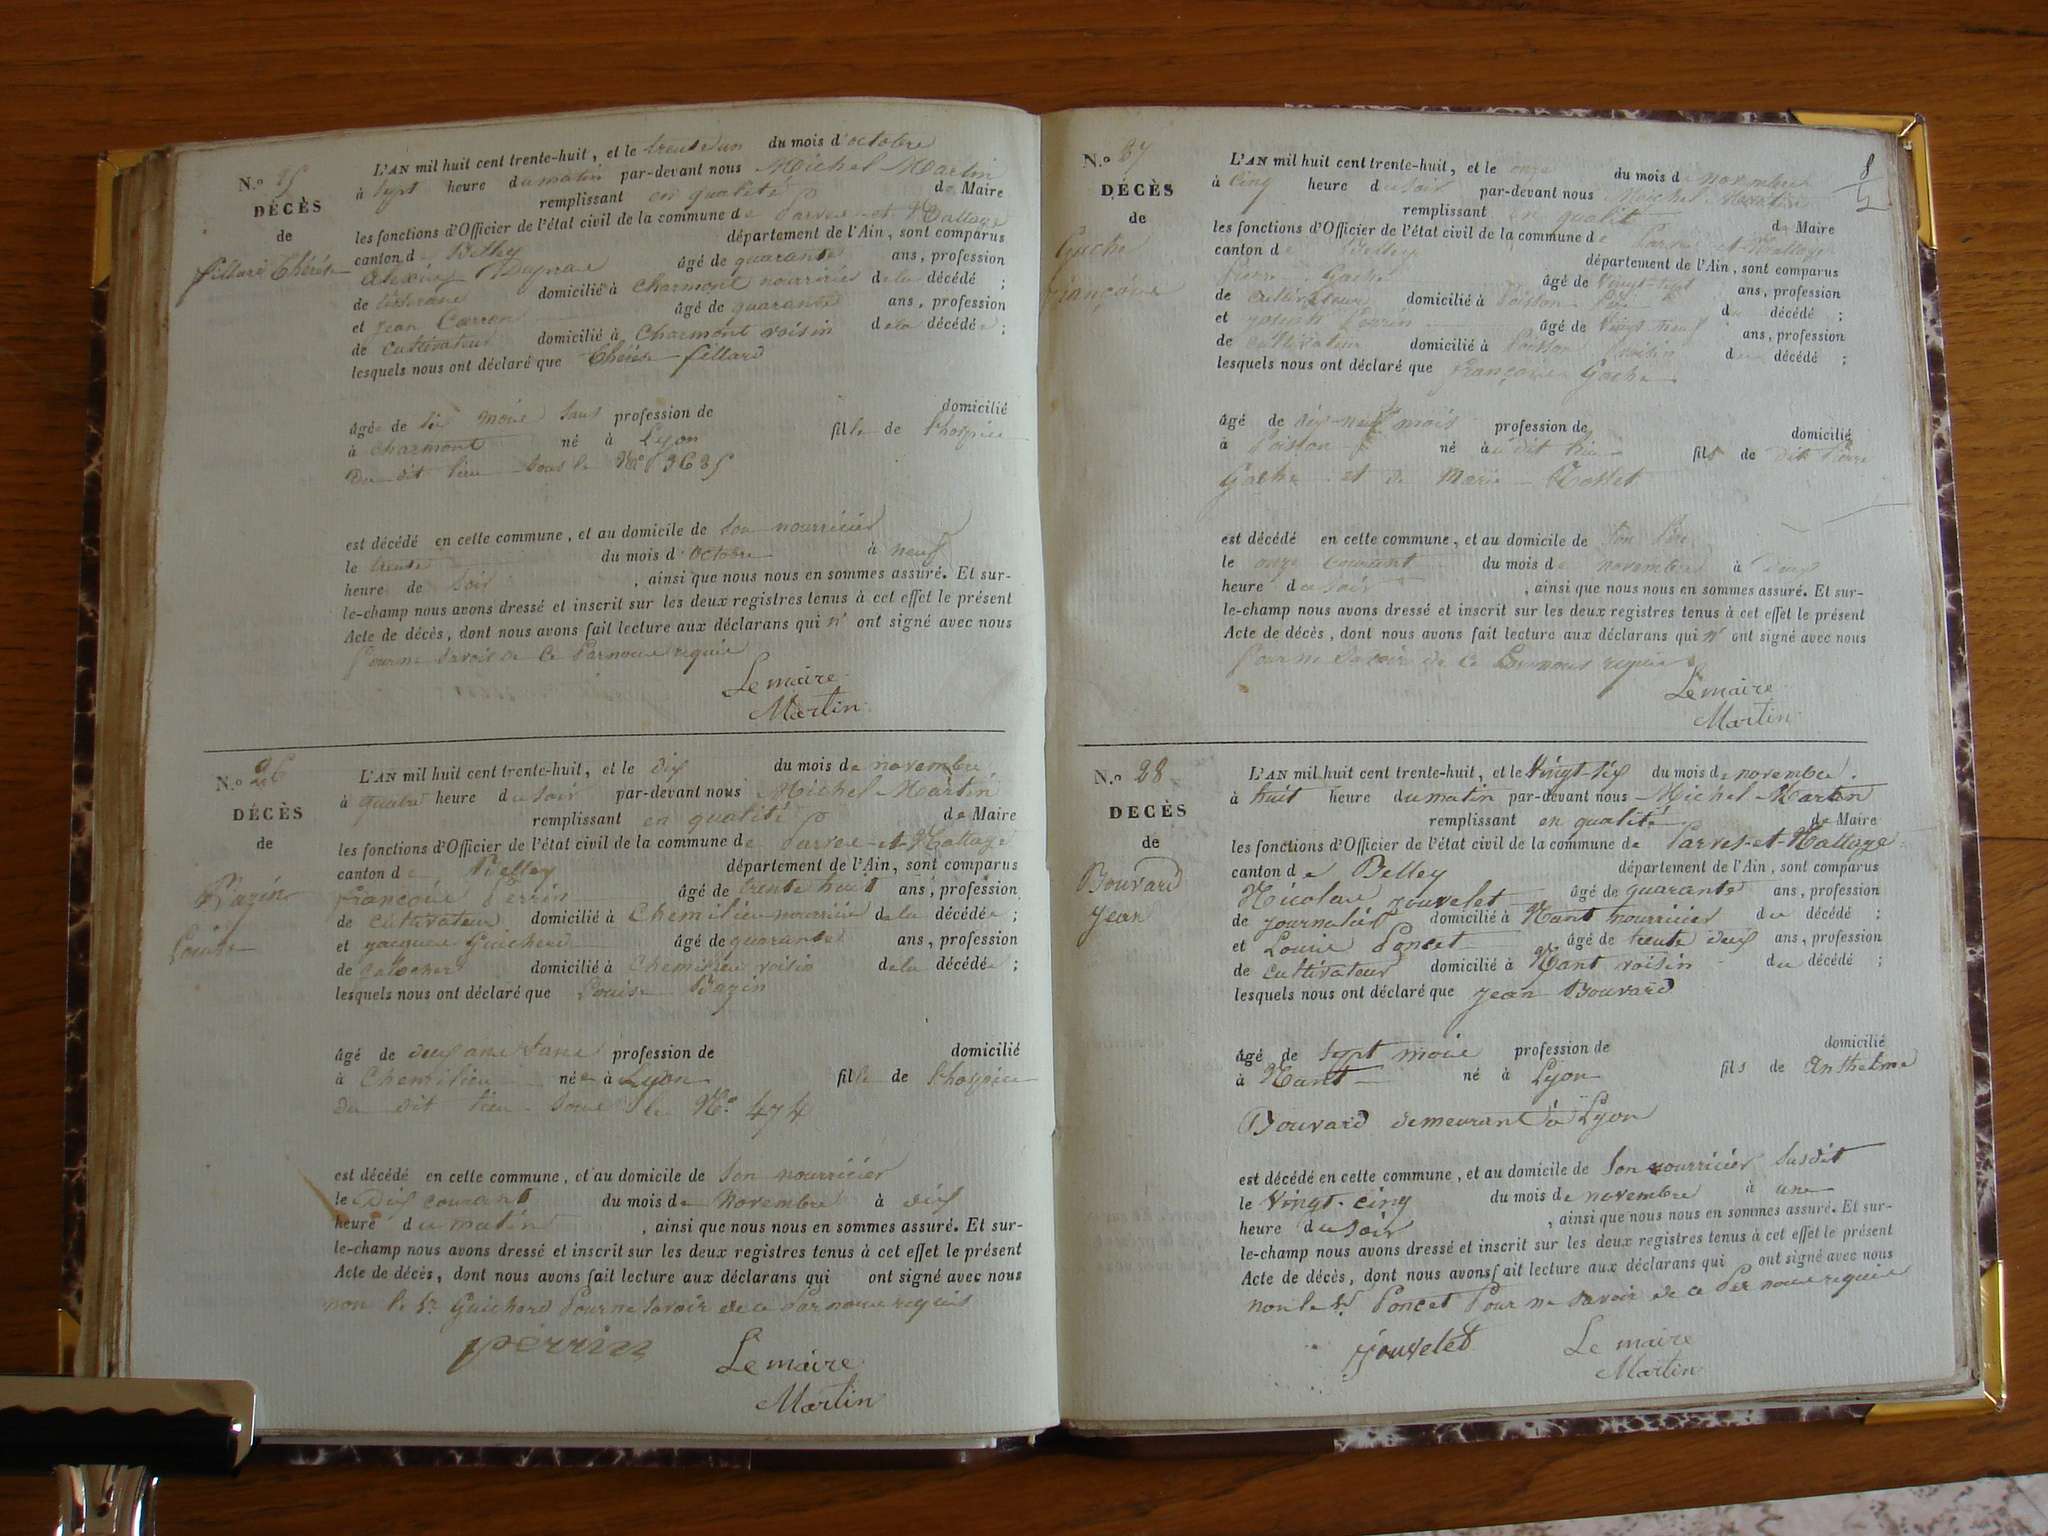 N.o 25
DÉCÈS
de
fillard Thérèse
L'AN mil huit cent trente-huit, et le trente un du mois d'octobre
à sept heure du matin par-devant nous Michel Martin
remplissant en qualité de Maire
les fonctions d'Officier de l'état civil de la commune de Parves-et-Nattage
canton de Belley département de l'Ain, sont comparus
alexis âgé de quarante ans, profession
de domicilié à Charmont nourricier de la décédé ;
et Jean Carron âgé de quarante ans, profession
de cultivateur domicilié à Charmont voisin de la décédée ;
lesquels nous ont déclaré que Thérèse fillard
âgée de six mois sans profession de domicilié
à charmont né à Lyon fille de l'hospice
du dit lieu sous le No
est décédé en cette commune, et au domicile de son nourricier
le trente du mois d'octobre à neuf
heure de soir , ainsi que nous nous en sommes assuré. Et sur-
le-champ nous avons dressé et inscrit sur les deux registres tenus à cet effet le présent
Acte de décès, dont nous avons fait lecture aux déclarans qui n'ont signé avec nous
Pour ne savoir de ce Par nous requis
Le maire
Martin
N.o 26
DÉCÈS
de
Bazin
Louise
L'AN mil huit cent trente-huit, et le dix du mois de novembre
à quatre heure du soir par-devant nous Michel Martin
remplissant en qualité de Maire
les fonctions d'Officier de l'état civil de la commune de Parves-et-Nattage
canton de Belley département de l'Ain, sont comparus
françois Perrin âgé de trente huit ans, profession
de cultivateur domicilié à Chemilieu nourricier de la décédée ;
et jacques Guicherd âgé de quarante ans, profession
de domicilié à Chemilieu voisin de la décédée ;
lesquels nous ont déclaré que Louise Bazin
âgé de deux ans sans profession de domicilié
à Chemilieu née à Lyon fille de l'hospice
du dit lieu sous le No 474
est décédé en cette commune, et au domicile de son nourricier
le Dix courant du mois de Novembre à dix
heure du matin , ainsi que nous nous en sommes assuré. Et sur-
le-champ nous avons dressé et inscrit sur les deux registres tenus à cet effet le présent
Acte de décès, dont nous avons fait lecture aux déclarans qui ont signé avec nous
non le Sr Guicherd Pour ne savoir de ce Par nous requis
perrin
Le maire
Martin
8
N.o 27
DÉCÈS
de
Gache
françoise
L'AN mil huit cent trente-huit, et le onze du mois de novembre
à cinq heure du soir par-devant nous Michel Martin
remplissant en qualité de Maire
les fonctions d'Officier de l'état civil de la commune de Parves et Nattage
canton de Belley département de l'Ain, sont comparus
Pierre Gache âgé de vingt-sept ans, profession
de cultivateur domicilié à Poisson Père du décédé ;
et joseph Perrin âgé de vingt neuf ans, profession
de cultivateur domicilié à Poisson voisin du décédé ;
lesquels nous ont déclaré que françois Gache
âgé de dix-neuf mois profession de domicilié
à Poisson né à u dit lieu fils de dit Pierre
Gache et de Marie
est décédé en cette commune, et au domicile de son Père
le onze courant du mois de novembre à deux
heure du soir , ainsi que nous nous en sommes assuré. Et sur-
le-champ nous avons dressé et inscrit sur les deux registres tenus à cet effet le présent
Acte de décès, dont nous avons fait lecture aux déclarans qui n'ont signé avec nous
Pour ne savoir de ce Par nous requis
Le maire
Martin
N.o 28
DÉCÈS
de
Bouvard
jean
L'AN mil huit cent trente-huit, et le Vingt-six du mois de novembre.
à huit heure du matin par-devant nous Michel Martin
remplissant en qualité de Maire
les fonctions d'Officier de l'état civil de la commune de Parves-et-Nattage
canton de Belley département de l'Ain, sont comparus
Nicolas jouvelet âgé de quarante ans, profession
de journalier domicilié à Nant nourricier du décédé ;
et Louis Poncet âgé de trente deux ans, profession
de cultivateur domicilié à Nant voisin du décédé ;
lesquels nous ont déclaré que jean Bouvard
âgé de sept mois profession de domicilié
à Nant né à Lyon fils de Anthelme
Bouvard demeurant à Lyon
est décédé en cette commune, et au domicile de son nourricier susdit
le Vingt-cinq du mois de novembre à une
heure du soir , ainsi que nous nous en sommes assuré. Et sur-
le-champ nous avons dressé et inscrit sur les deux registres tenus à cet effet le présent
Acte de décès, dont nous avons fait lecture aux déclarans qui ont signé avec nous
non le Sr Poncet Pour ne savoir de ce Par nous requis
jouvelet
Le maire
Martin